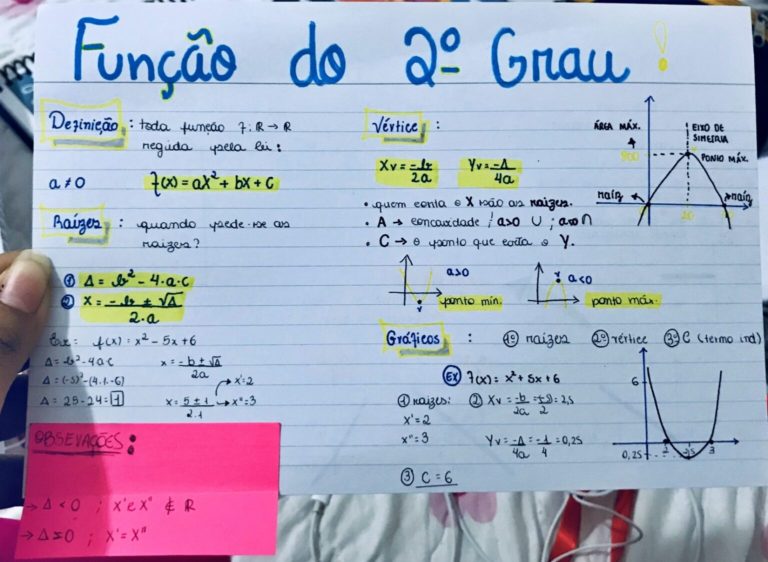 Função do 2º Grau!
Definição: toda função f: R → R
regida pela lei:
a ≠ 0 f(x) = ax² + bx + c
Raízes: quando pede-se as
raizes?
① Δ = b² - 4·a·c
② X = -b ± √Δ
2·a
Ex: f(x): x² - 5x + 6
Δ = b² - 4ac
Δ = (-5)² - (4.1.-6)
Δ = 25 - 24 = 1
x = -b ± √Δ
2a
x = 5 ± 1
2.1
x' = 2
x" = 3
OBSEVAÇÕES:
→ Δ < 0 ; x' e x" ∉ R
→ Δ = 0 ; x' = x"
Vértice:
Xv = -b
2a
Yv = -Δ
4a
• quem corta o X são as raizes.
• A → concavidade / a>0 ∪ ; a<0 ∩
• C → o ponto que corta o Y.
ÁREA MÁX.
EIXO DE
SIMETRIA
PONTO MÁX.
raíz
raíz
a>0
v
ponto mín.
v
a<0
ponto máx.
Gráficos: 1º raizes 2º vértice 3º C (termo ind)
EX f(x) = x² + 5x + 6
① raizes:
x' = 2
x" = 3
② Xv = -b = +5 = 2,5
2a 2
Yv = -Δ = -1 = 0,25
4a 4
③ C = 6
6
0,25
2 2,5 3